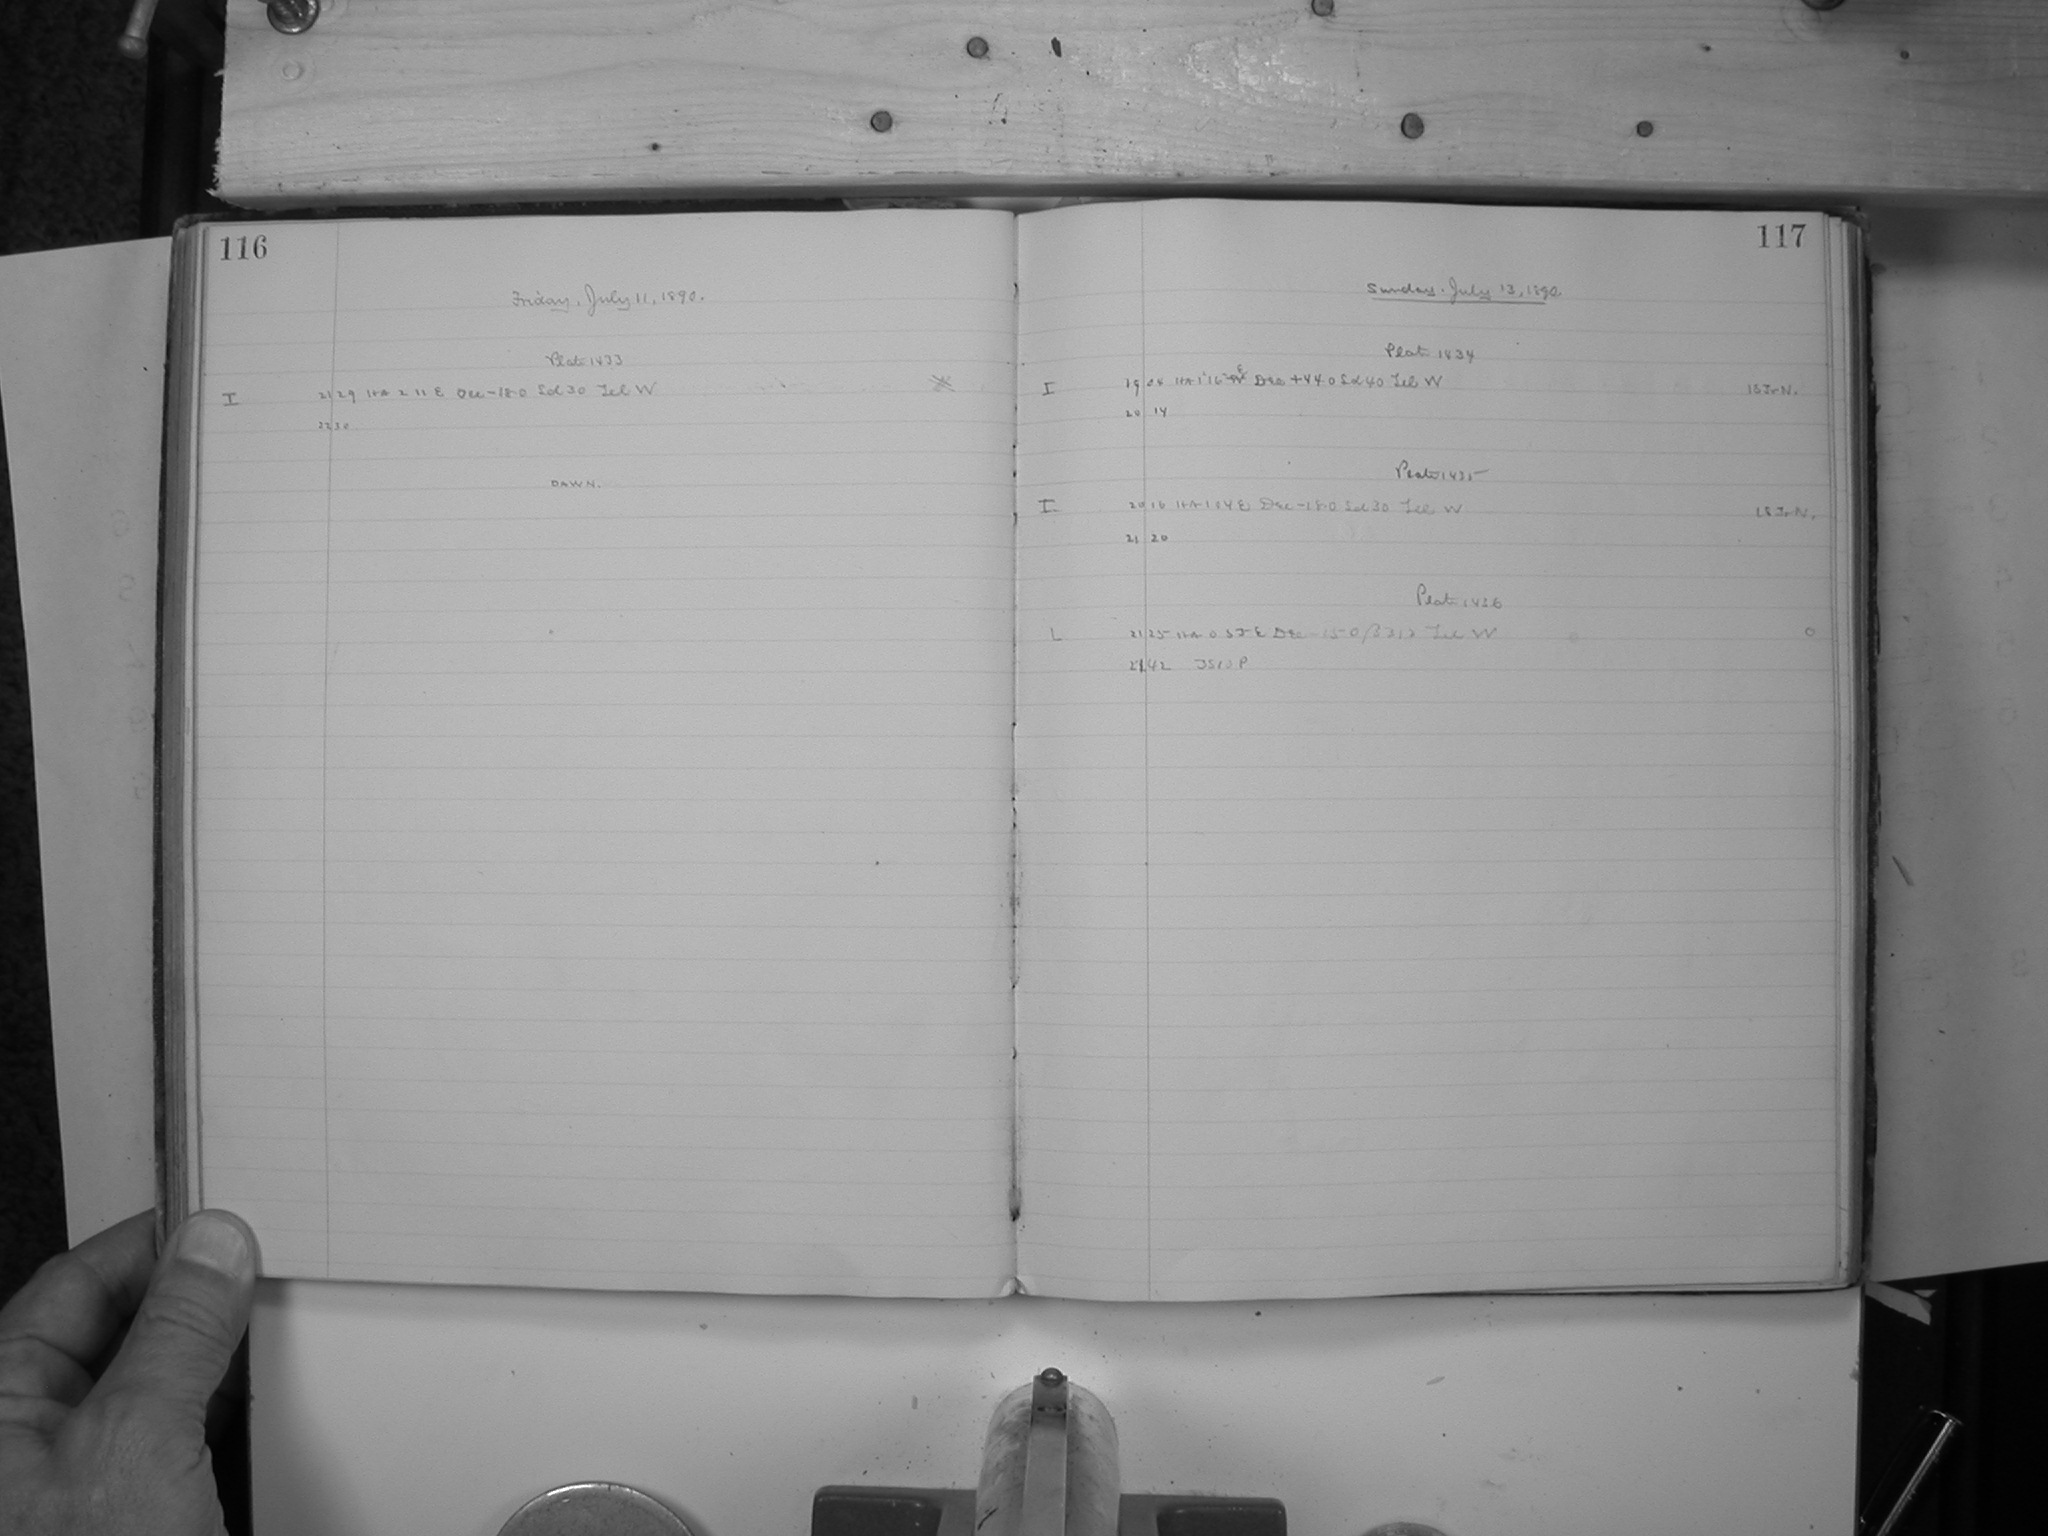 116
Friday, July 11, 1890.
Plate 1433
I 21 29 HA 2 11 E Dec -18 0 Sd 30 Tel W
22 30
DAWN.
117
Sunday, July 13, 1890.
Plate 1434
I 19 04 HA 1 16 E Dec +44 0 Sd 40 Tel W 18 Tr N.
20 14
Plate 1435
I 20 16 HA 1 04 E Dec -18 0 Sd 30 Tel W 18 Tr N.
21 20
Plate 1436
L 21 25 HA 0 Dec -15 0 Tel W 0
21 42